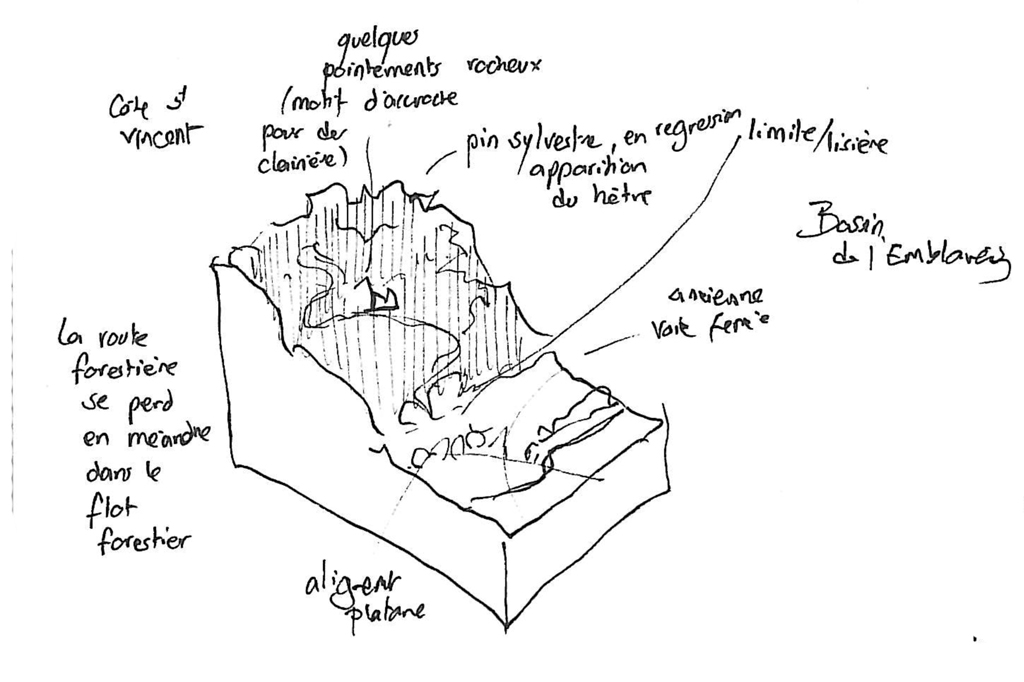 quelques
pointements rocheux
(motif d'accroche
pour des
clairière)
Côte St
vincent
pin sylvestre, en regression
apparition
du hêtre
limite/lisière
Bassin
de l'Emblavez
ancienne
voie ferrée
La route
forestière
se perd
en méandre
dans le
flot
forestier
alignemt
platane